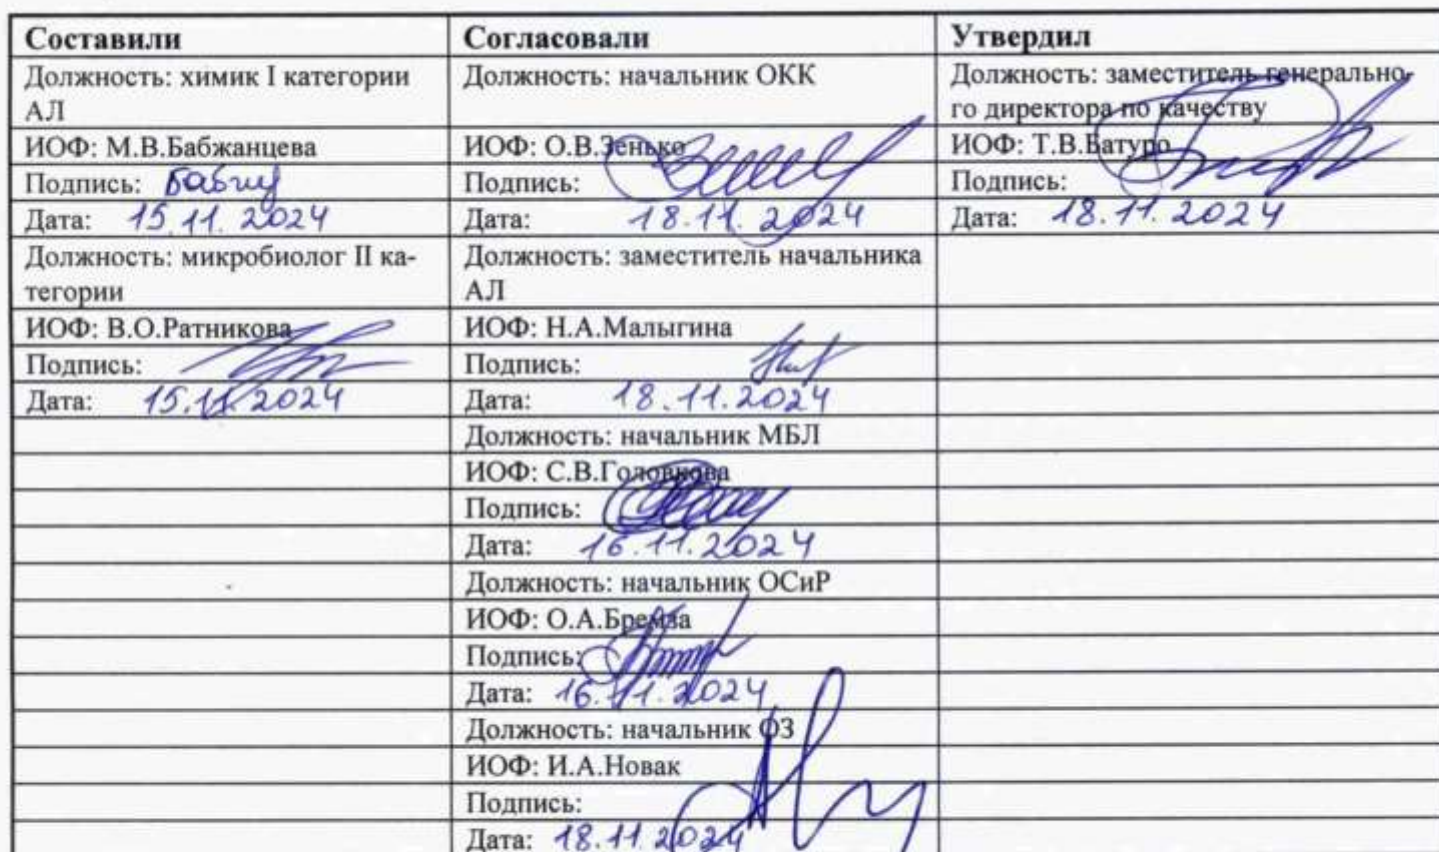 Составили Согласовали Утвердил
Должность: химик I категории Должность: начальник ОКК Должность: заместитель генерально-
АЛ го директора по качеству
ИОФ: М.В.Бабжанцева ИОФ: О.В.Зенько ИОФ: Т.В.Батуро
Подпись: Подпись: Подпись:
Дата: 15.11.2024 Дата: 18.11.2024 Дата: 18.11.2024
Должность: микробиолог II ка- Должность: заместитель начальника
тегории АЛ
ИОФ: В.О.Ратникова ИОФ: Н.А.Малыгина
Подпись: Подпись:
Дата: 15.11.2024 Дата: 18.11.2024
Должность: начальник МБЛ
ИОФ: С.В.Головкова
Подпись:
Дата: 16.11.2024
Должность: начальник ОСиР
ИОФ: О.А.Бремза
Подпись:
Дата: 16.11.2024
Должность: начальник ОЗ
ИОФ: И.А.Новак
Подпись:
Дата: 18.11.2024